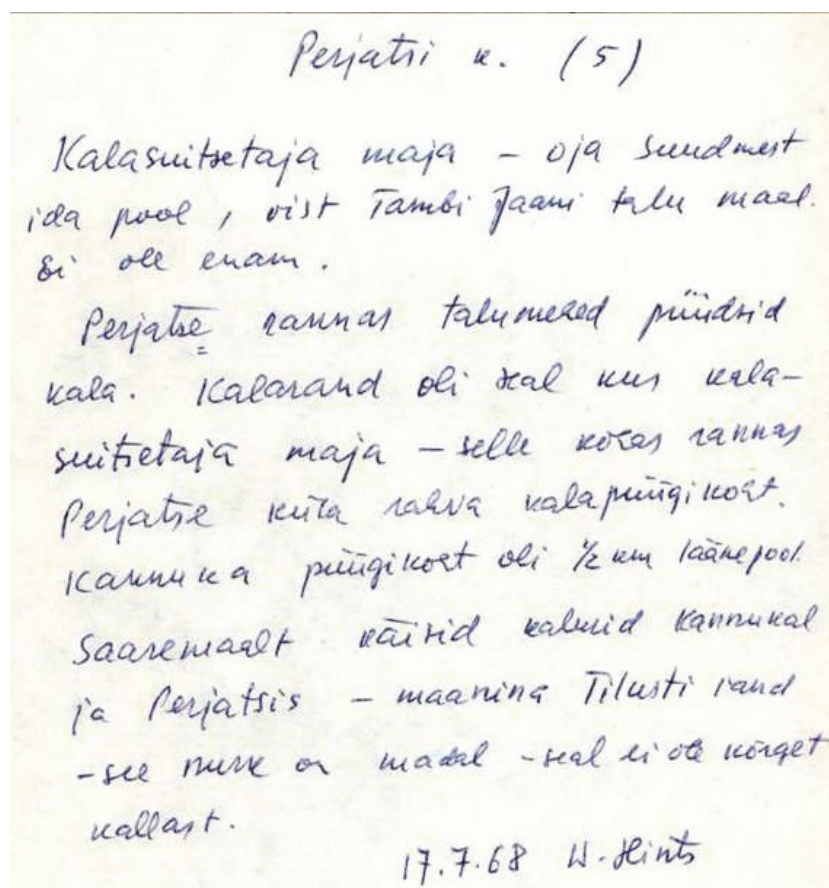 Perjatsi k. (5)
Kalasuitsetaja maja – oja suudmest
ida pool, vist Tambi Jaani talu maal.
Ei ole enam.
Perjatse rannas talumehed püüdsid
kala. Kalarand oli seal kus kala-
suitsetaja maja – selle kohas rannas
Perjatse küla rahva kalapüügikoht.
Kannuka püügikoht oli 1/2 km läänepool.
Saaremaalt käisid kalurid Kannukal
ja Perjatsis – maanina Tilusti rand
- see nurk on madal - seal ei ole kõrget
kallast.
17.7.68 W. Hints